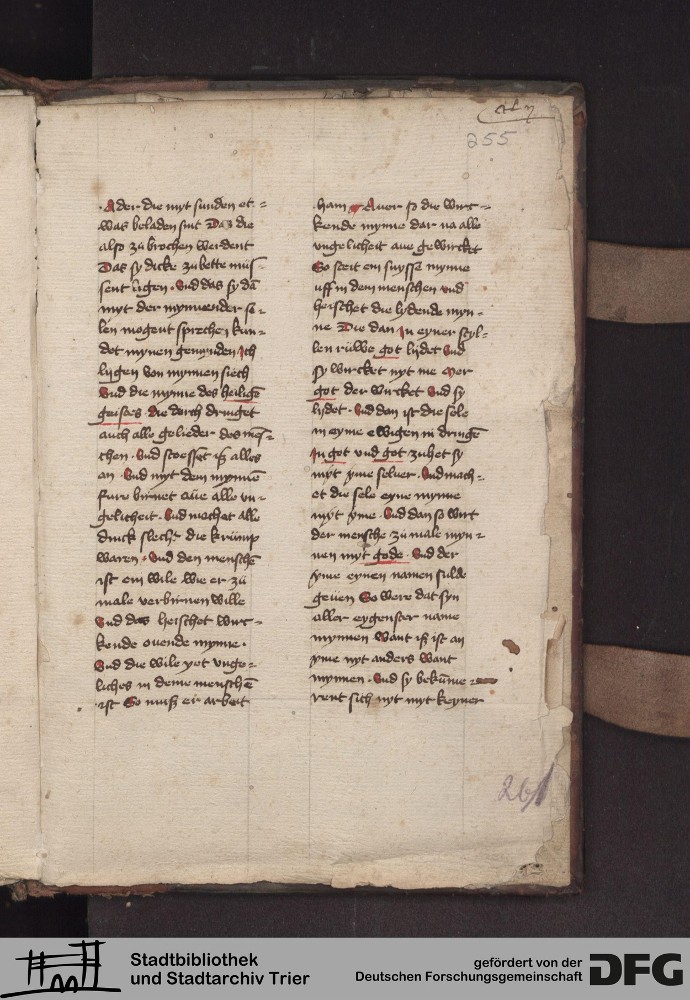 255
Ader die myt sunden et=
was beladen sint Daz die
also zu brochen werdent
Das sy dicke zu bette müs=
sent ligen. Vnd das sy dā
myt der mynnender se=
len mogent sprechen kun=
det mynen gemynden Ich
lygen von mynnen siech
Vnd die mynne des heiligē
geistes die dorch dringet
auch alle gelieder des mēs=
chen. Vnd stoesset iß alles
an. Vnd myt dem mynnē
fure birnet aüe alle vn=
gelicheit. Vnd machet alle
dinck slecht die krümp
waren. Vnd den menschē
ist ein wile wie er zü
male verbirnen wille
Vnd das heischet wur=
kende ouende mynne.
Vnd die wile yet unge=
liches in deme menschē
ist So müß eir arbeit
ham Auer so die wur=
kende mynne dar na alle
vngelicheit aue gewircket
So steit ein suysse mynne
uff in dem menschen vnd
heischet die lydende myn=
ne Die dan in eyner styl=
len rüwe got lydet Vnd
sy wircket nyt me Mer
got der wircket Vnd sy
lydet. Vnd dan ist die sele
in eyme ewigen in dringē
In got vnd got zuhet sy
myt yme seluer. Vnd mach=
et die sele eyne mynne
myt yme. Vnd dan so wirt
der mensche zu male myn=
nen myt gode. Vnd der
yme eynen namen sulde
geüen So were dat syn
aller eygenster name
mynnen want iß ist an
yme nyt anders want
mynnen. Vnd sy bekūme=
rent sich nyt myt keyner
261
Stadtbibliothek
und Stadtarchiv Trier
gefördert von der
Deutschen Forschungsgemeinschaft
DFG